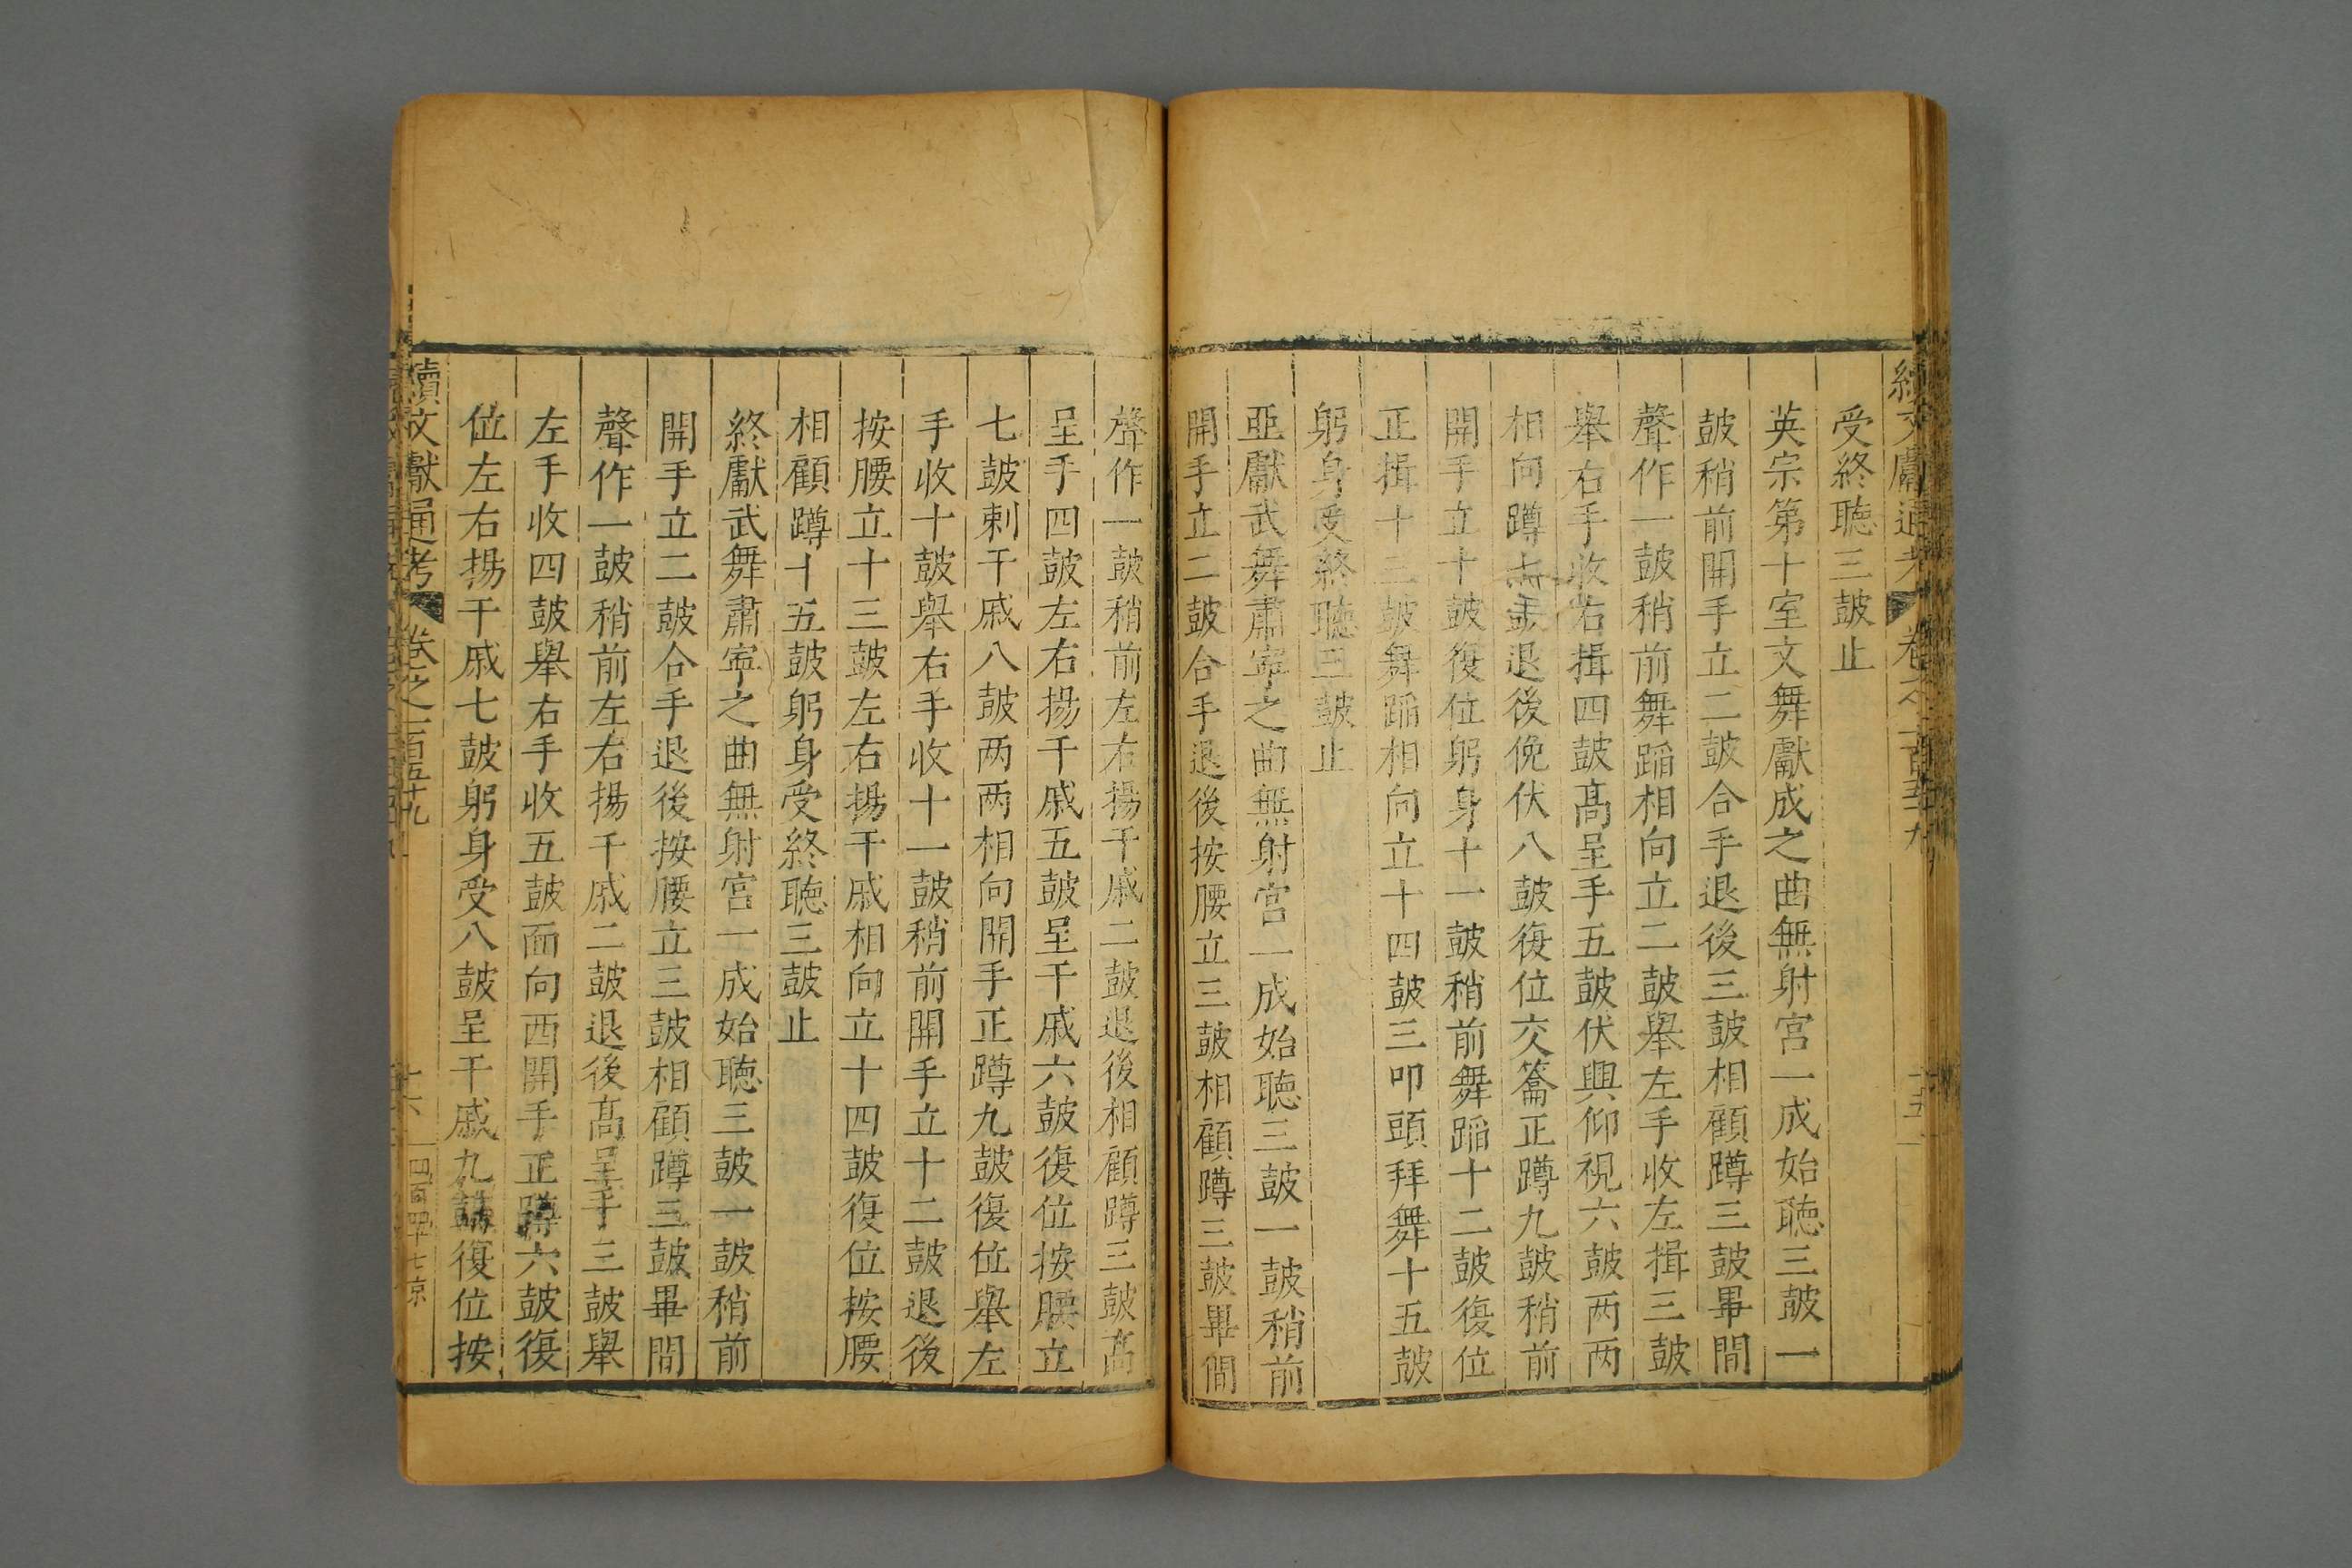 續文獻通考 卷之一百五十九 十五
受終聽三鼔止
英宗第十室文舞獻成之曲無射宮一成始聽三鼔一
鼔稍前開手立二鼔合手退後三鼔相顧蹲三鼔畢間
聲作一鼔稍前舞蹈相向立二鼔舉左手收左揖三鼔
舉右手收右揖四鼔髙呈手五鼔伏興仰視六鼔两两
相向蹲七鼔退後俛伏八鼔復位交籥正蹲九鼔稍前
開手立十鼔復位躬身十一鼔稍前舞蹈十二鼔復位
正揖十三鼔舞蹈相向立十四鼔三叩頭拜舞十五鼔
躬身受終聽三鼔止
亞獻武舞肅寧之曲無射宮一成始聽三鼔一鼔稍前
開手立二鼔合手退後按腰立三鼔相顧蹲三鼔畢間
聲作一鼔稍前左右揚干戚二鼔退後相顧蹲三鼔髙
呈手四鼔左右揚干戚五鼔呈干戚六鼔復位按腰立
七鼔刺干戚八鼔两两相向開手正蹲九鼔復位舉左
手收十鼔舉右手收十一鼔稍前開手立十二鼔退後
按腰立十三鼔左右揚干戚相向立十四鼔復位按腰
相顧蹲十五鼔躬身受終聽三鼔止
終獻武舞肅寧之曲無射宮一成始聽三鼔一鼔稍前
開手立二鼔合手退後按腰立三鼔相顧蹲三鼔畢間
聲作一鼔稍前左右揚干戚二鼔退後髙呈手三鼔舉
左手收四鼔舉右手收五鼔面向西開手正蹲六鼔復
位左右揚干戚七鼔躬身受八鼔呈干戚九鼔復位按
續文獻通考 卷之一百五十九 十六 四百四十七 京